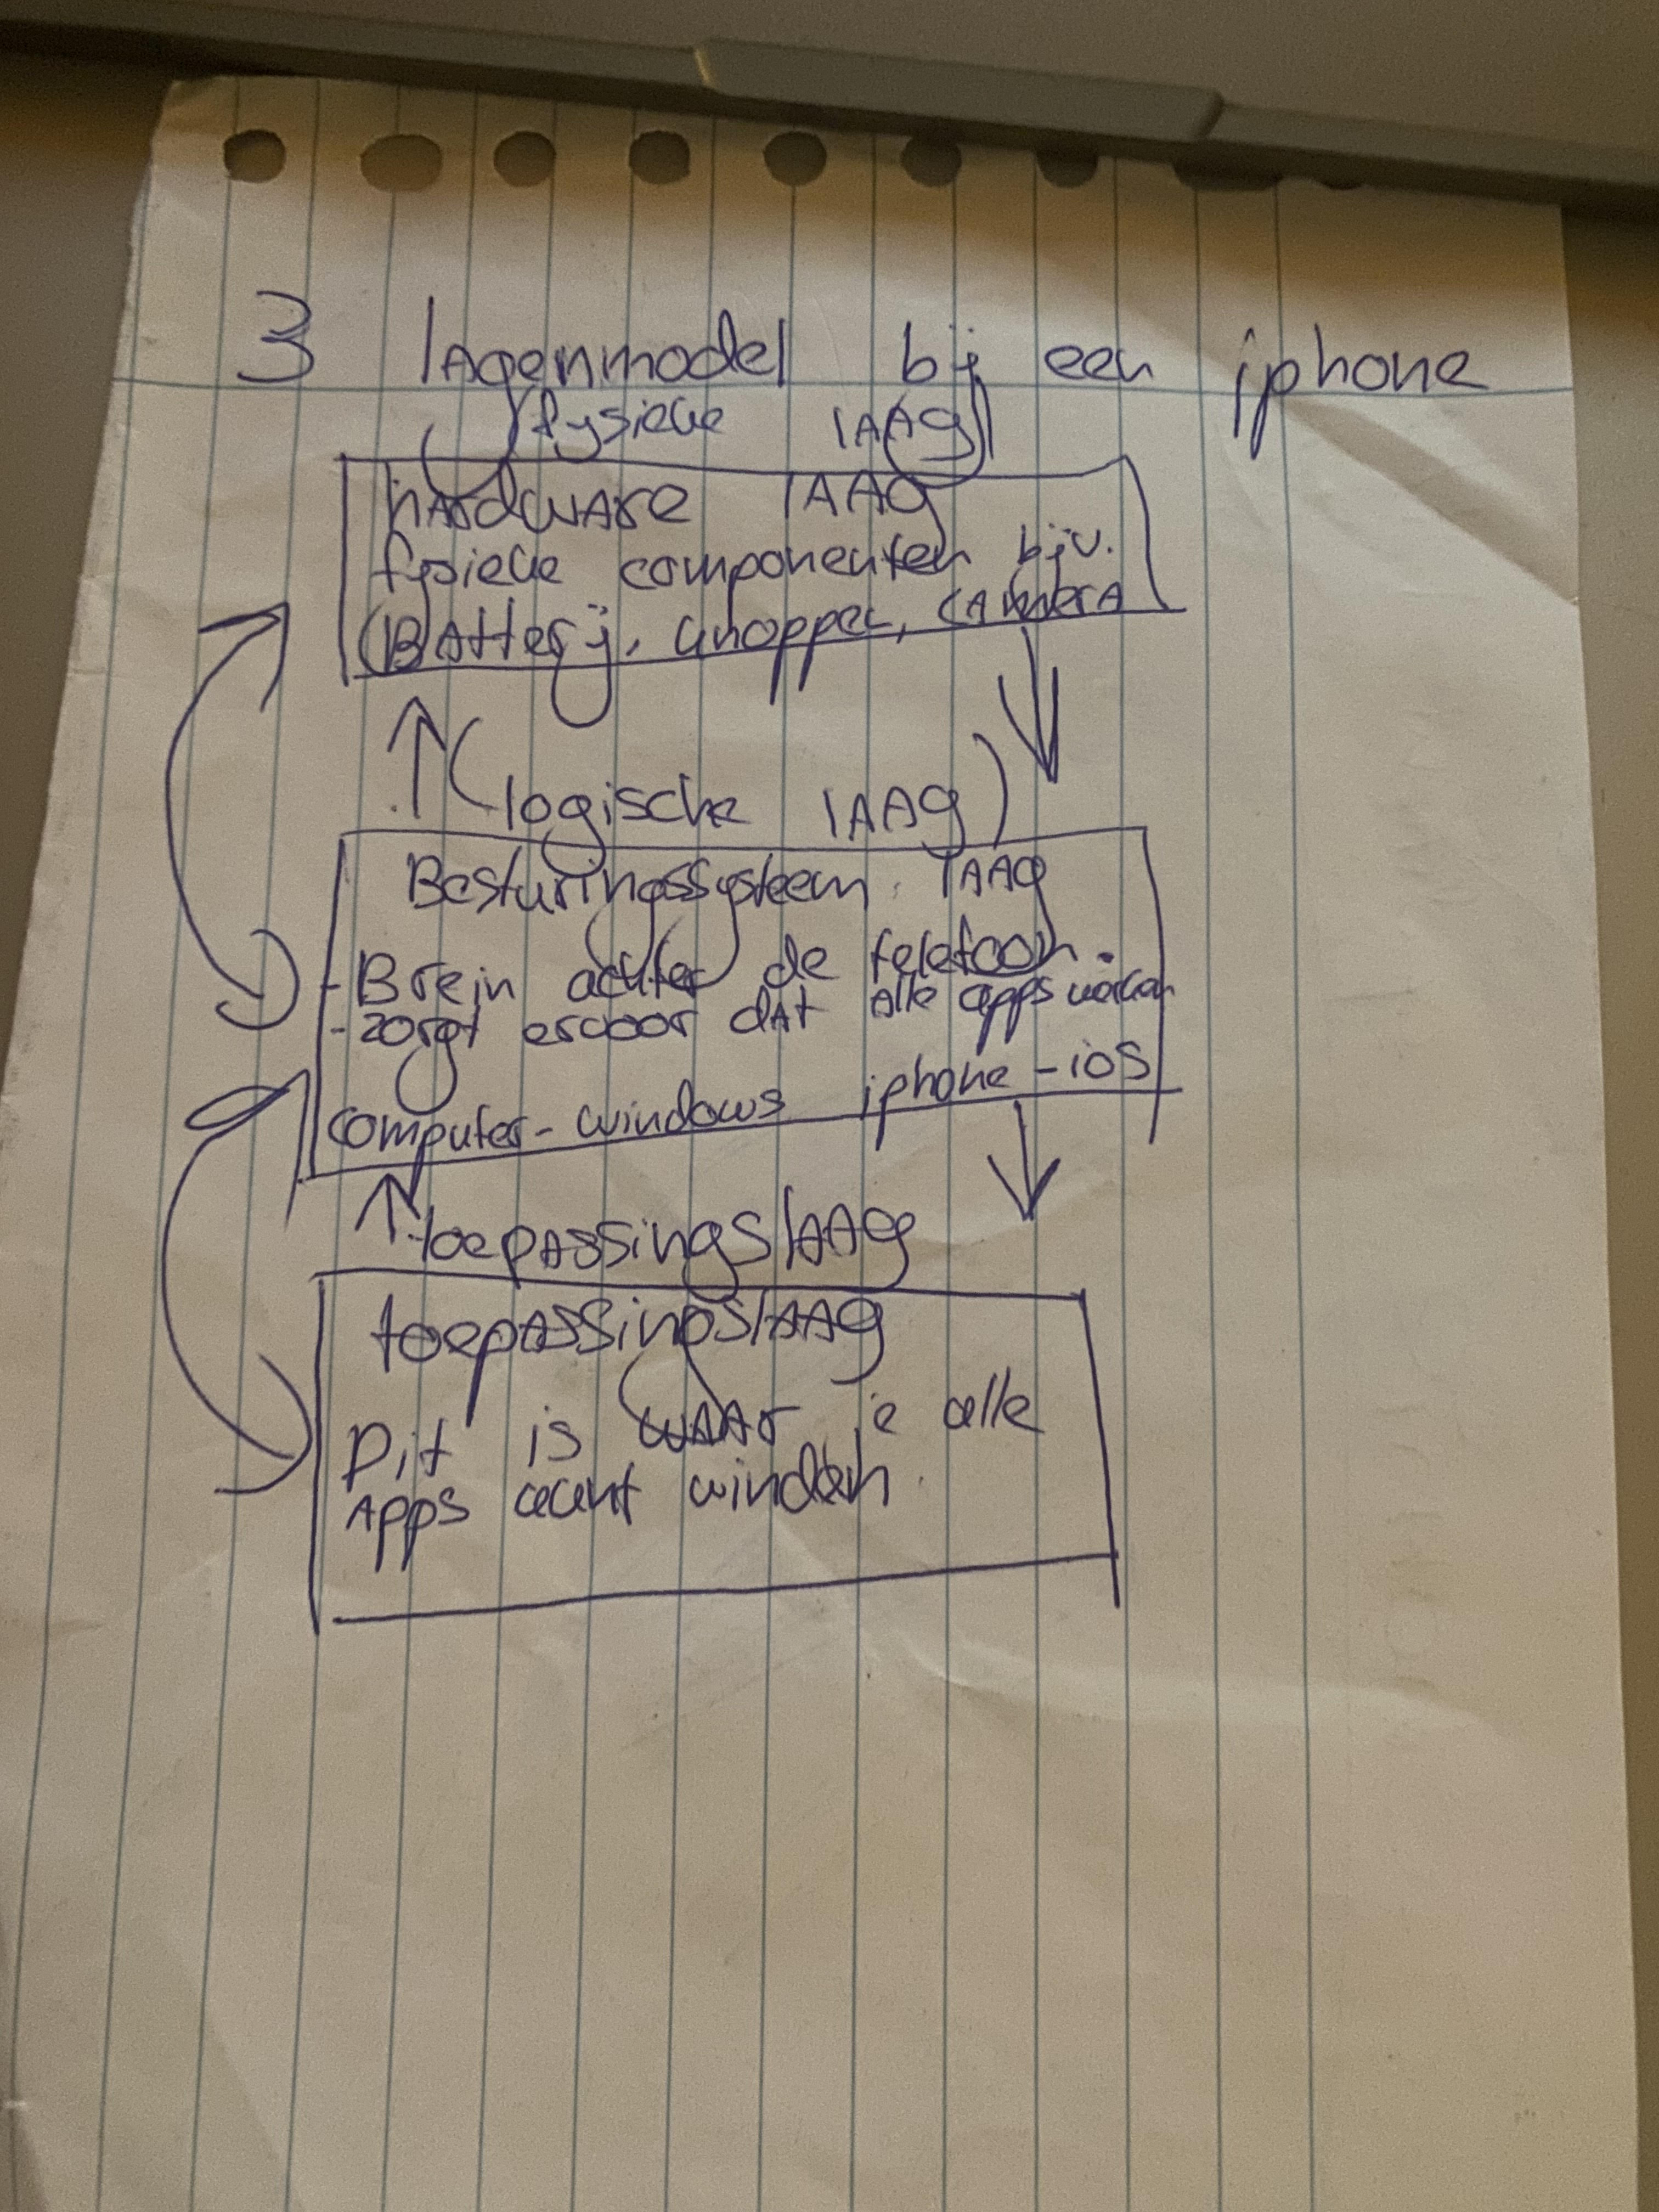 3 lagenmodel bij een iphone
(fysieke laag)
hardware laag
fysieke componenten bijv.
(Batterij, knoppen, camera
(logische laag)
Besturingssysteem laag
- Brein achter de telefoon.
- zorgt ervoor dat alle apps werken
computer - windows iphone - ios
toepassingslaag
toepassingslaag
Dit is waar je alle
apps kunt vinden.